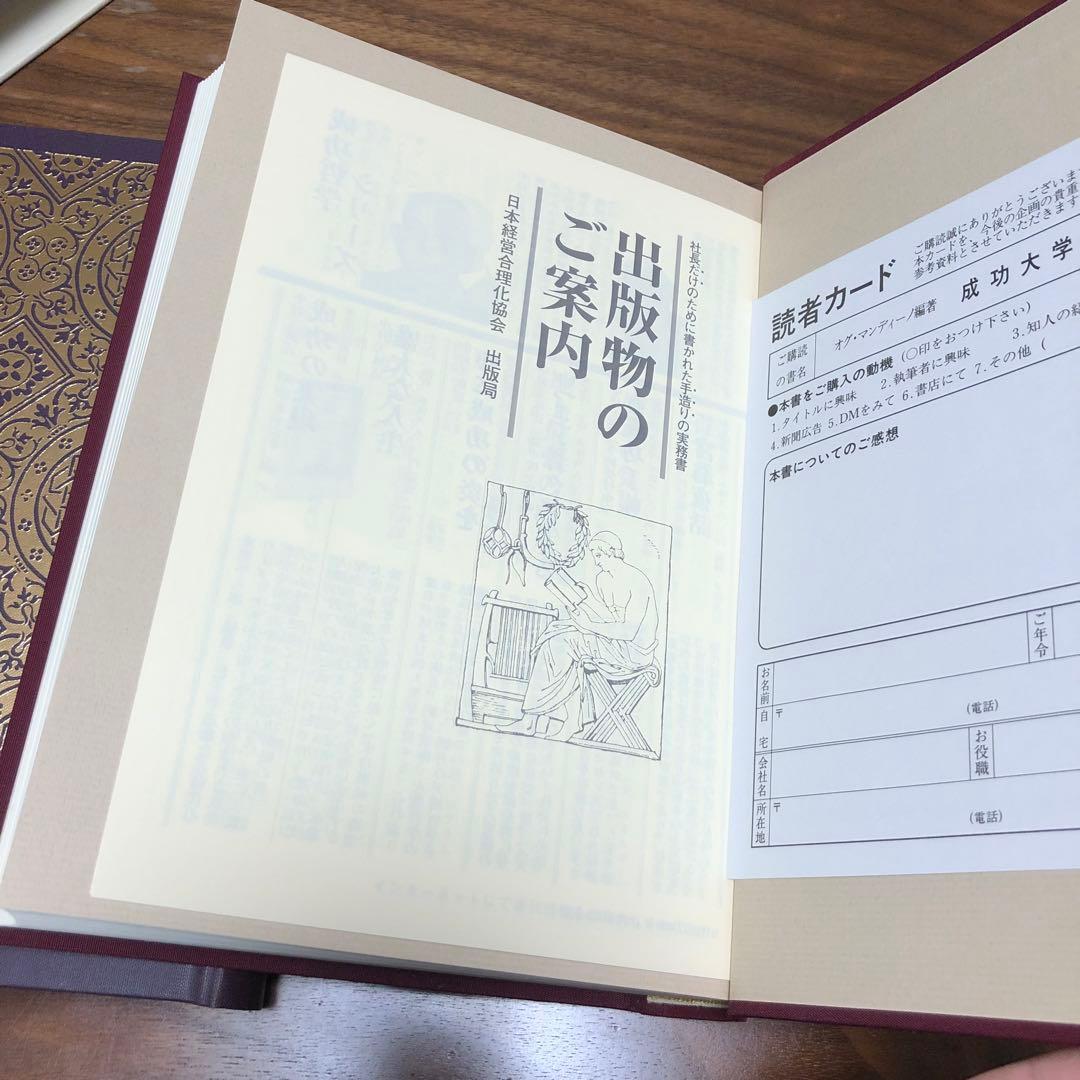 社長だけのために書かれた手造りの実務書
出版物の
ご案内
日本経営合理化協会 出版局
ご購読誠にありがとうございま
本カードを、今後の企画の貴重
参考資料とさせていただきます
読者カード
ご購読
の書名
オグ・マンディーノ編著 成功大学
●本書をご購入の動機 (○印をおつけ下さい)
1.タイトルに興味 2.執筆者に興味 3.知人の紹
4.新聞広告 5.DMをみて 6.書店にて 7.その他 (
本書についてのご感想
ご年令
お名前
自宅
〒
(電話)
会社名
お役職
所在地
〒
(電話)